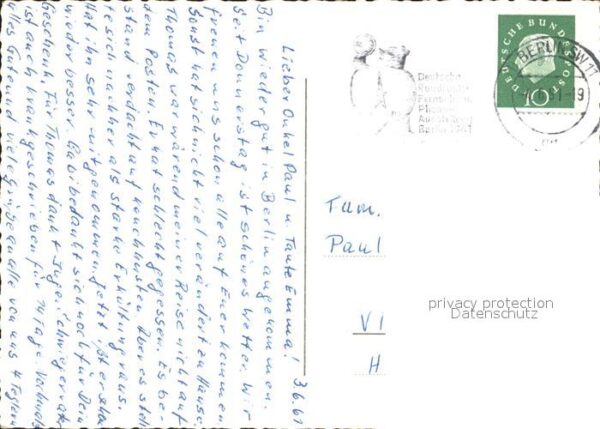 Lieber Onkel Paul u. Tante Emma!
3.6.61
Bin wieder gut in Berlin angekommen.
Seit Donnerstag ist schönes Wetter. Wir
freuen uns schon alle auf Euer kommen.
Sonst hat sich nicht viel verändert zu Hause.
Thomas war während meiner Reise nicht auf
dem Posten. Er hat schlecht gegessen. Es be-
stand verdacht auf Keuchhusten. Aber es stell
te sich nachher als starke Erkältung raus.
Hat ihn sehr mitgenommen. Jetzt ißt er schon
wieder besser. Gabi bedankt sich noch für Dein
Geschenk. Für Thomas dankt Inge. Schwiegervater
ist auch krankgeschrieben für 14 Tage.
Alles Gute und
Fam.
Paul
VI
H
DEUTSCHE BUNDESPOST
10
BERLIN SW 11
-19
Deutsche
Rundfunk-
Fernseh-
Phono-
Ausstellung
Berlin 1961
privacy protection
Datenschutz